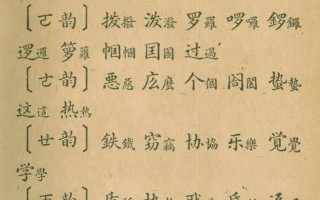 〔ㄛ韵〕拨撥 泼潑 罗羅 啰囉 锣鑼
逻邏 箩籮 帼幗 国國 过過
〔ㄜ韵〕悪惡 庅麼 个個 阁閣 蛰蟄
这這 热熱
〔ㄝ韵〕鉄鐵 窃竊 协協 乐樂 覚覺
学學